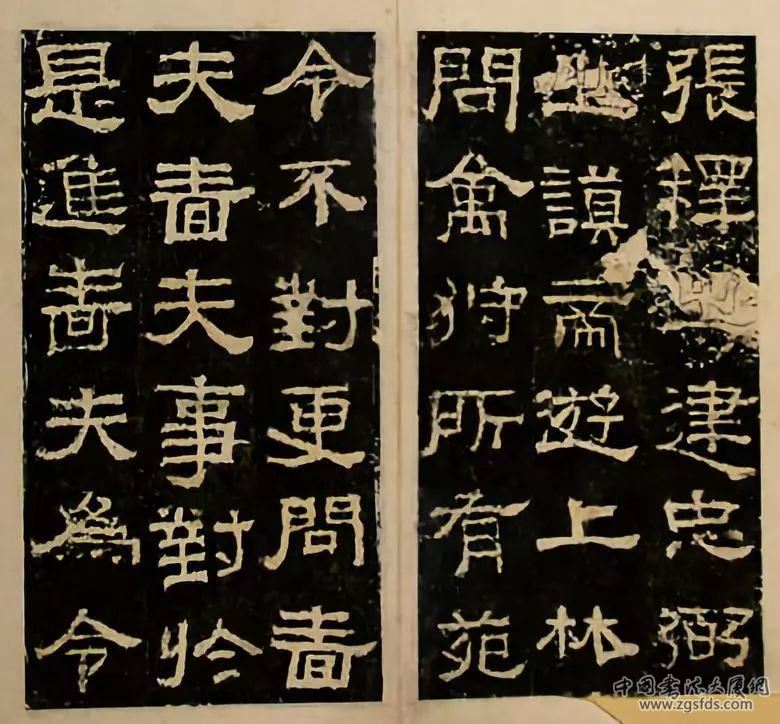 張釋之建忠弼
之謨帝遊上林
問禽狩所有苑
令不對更問嗇
夫嗇夫事對於
是進嗇夫為令
中國書法大廈網
www.zgsfds.com